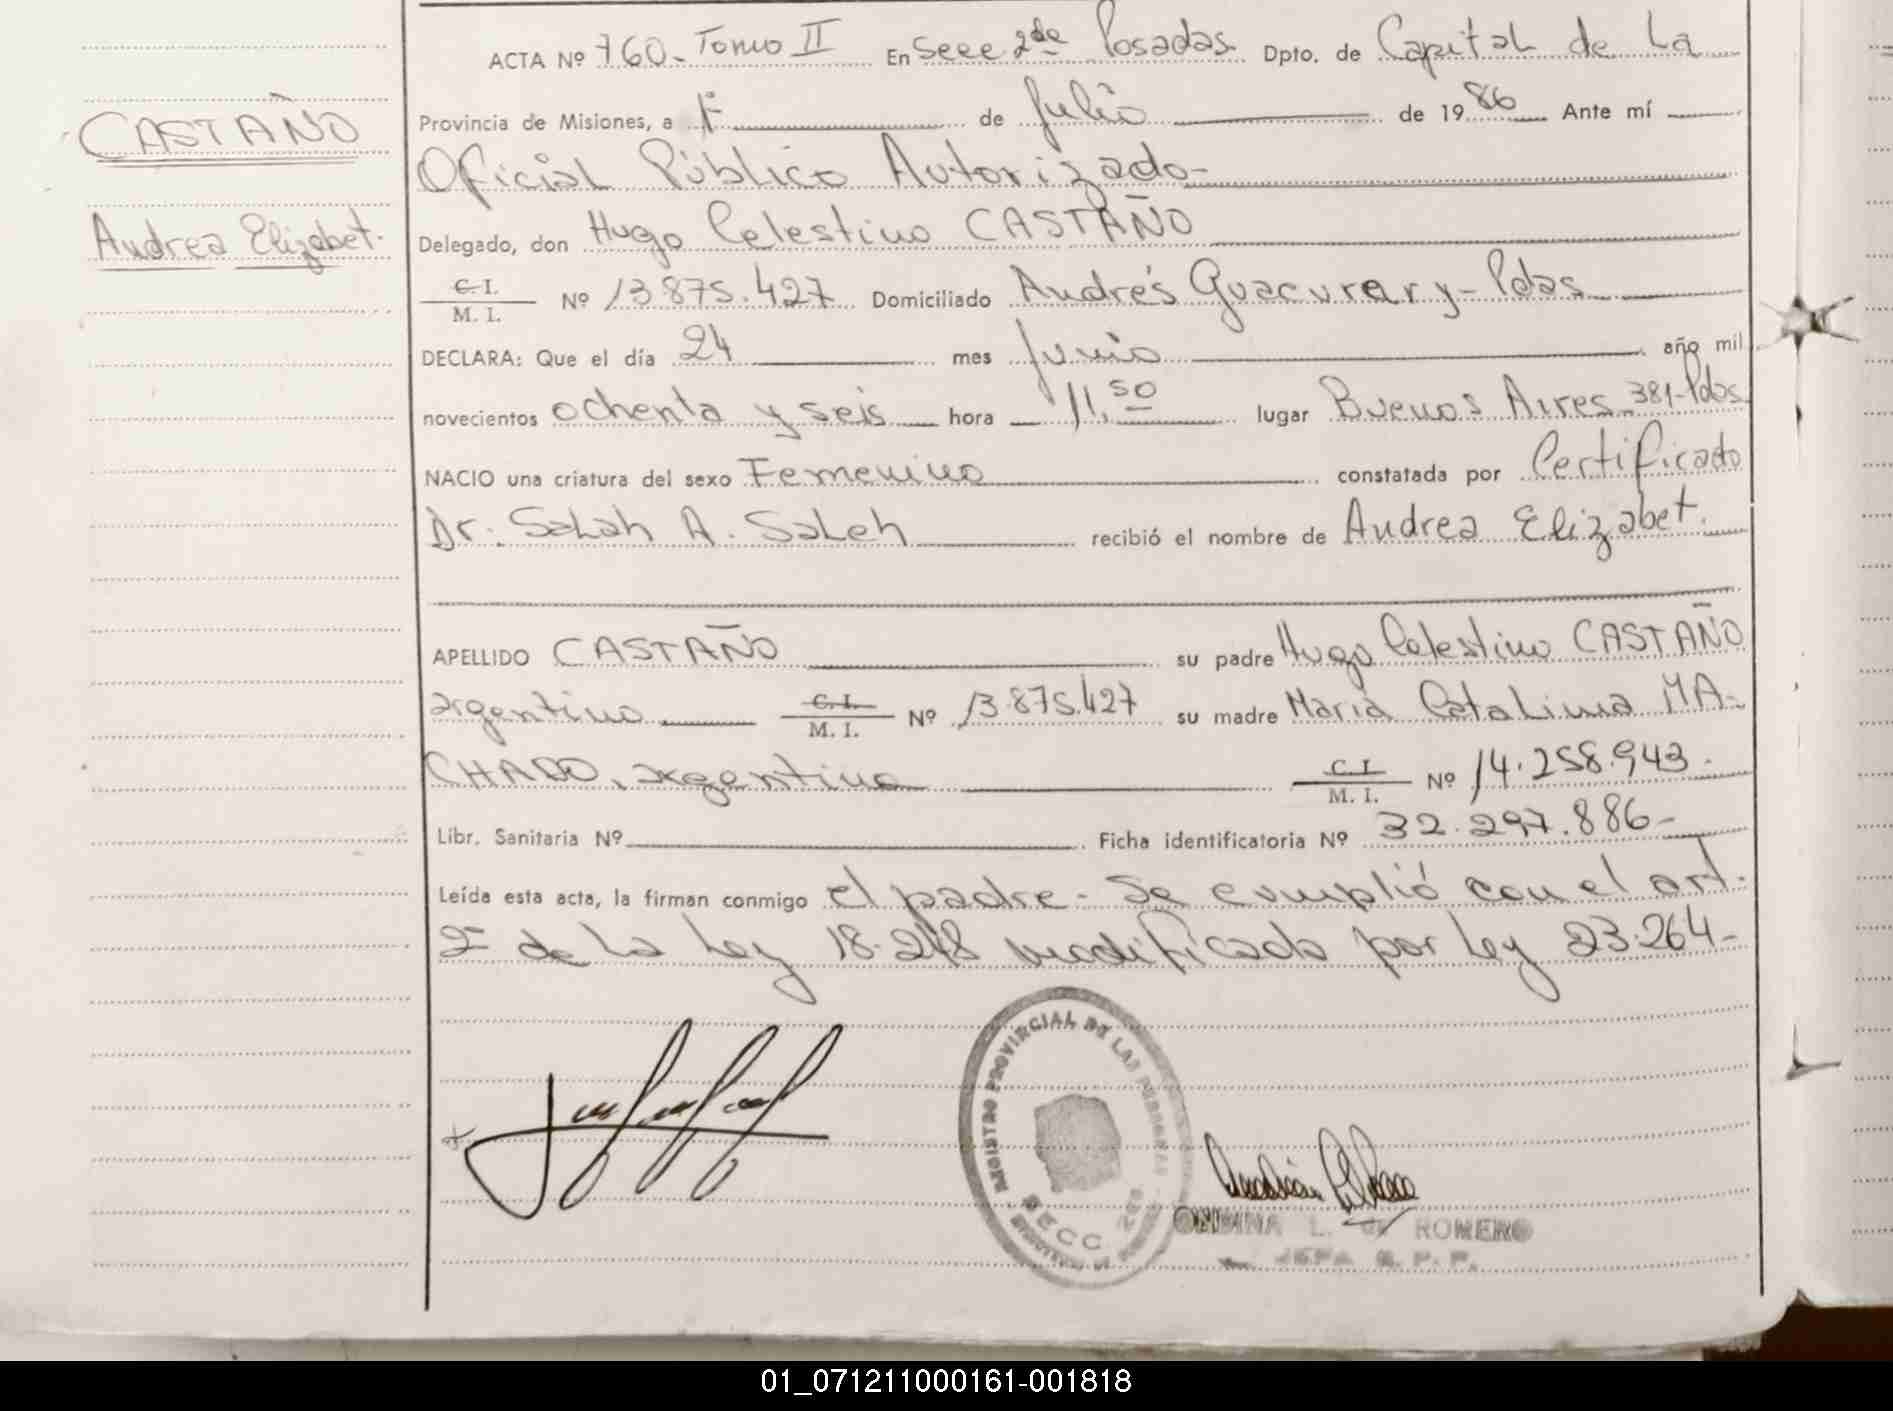 ACTA Nº 760- Tomo II En Secc 2da Posadas Dpto. de Capital de La
Provincia de Misiones, a 1º de Julio de 1986 Ante mí
CASTAÑO
Oficial Público Autorizado-
Andrea Elizabet.
Delegado, don Hugo Celestino CASTAÑO
C. I. / M. I. Nº 13.875.427 Domiciliado Andrés Guacurary - Pdas
DECLARA: Que el día 24 mes Junio año mil
novecientos ochenta y seis hora 11,50 lugar Buenos Aires 381-Pdas.
NACIO una criatura del sexo Femenino constatada por Certificado
Dr. Salah A. Saleh recibió el nombre de Andrea Elizabet.
APELLIDO CASTAÑO su padre Hugo Celestino CASTAÑO
argentino C. I. / M. I. Nº 13.875.427 su madre María Catalina MA-
CHADO, argentina C. I. / M. I. Nº 14.258.943.
Libr. Sanitaria Nº Ficha identificatoria Nº 32.297.886-
Leída esta acta, la firman conmigo el padre - Se cumplió con el art.
2º de la Ley 18.248 modificada por Ley 23.264-
REGISTRO PROVINCIAL DE LAS PERSONAS
SECC
ONDINA L. de ROMERO
JEFA R. P. P.
01_071211000161-001818